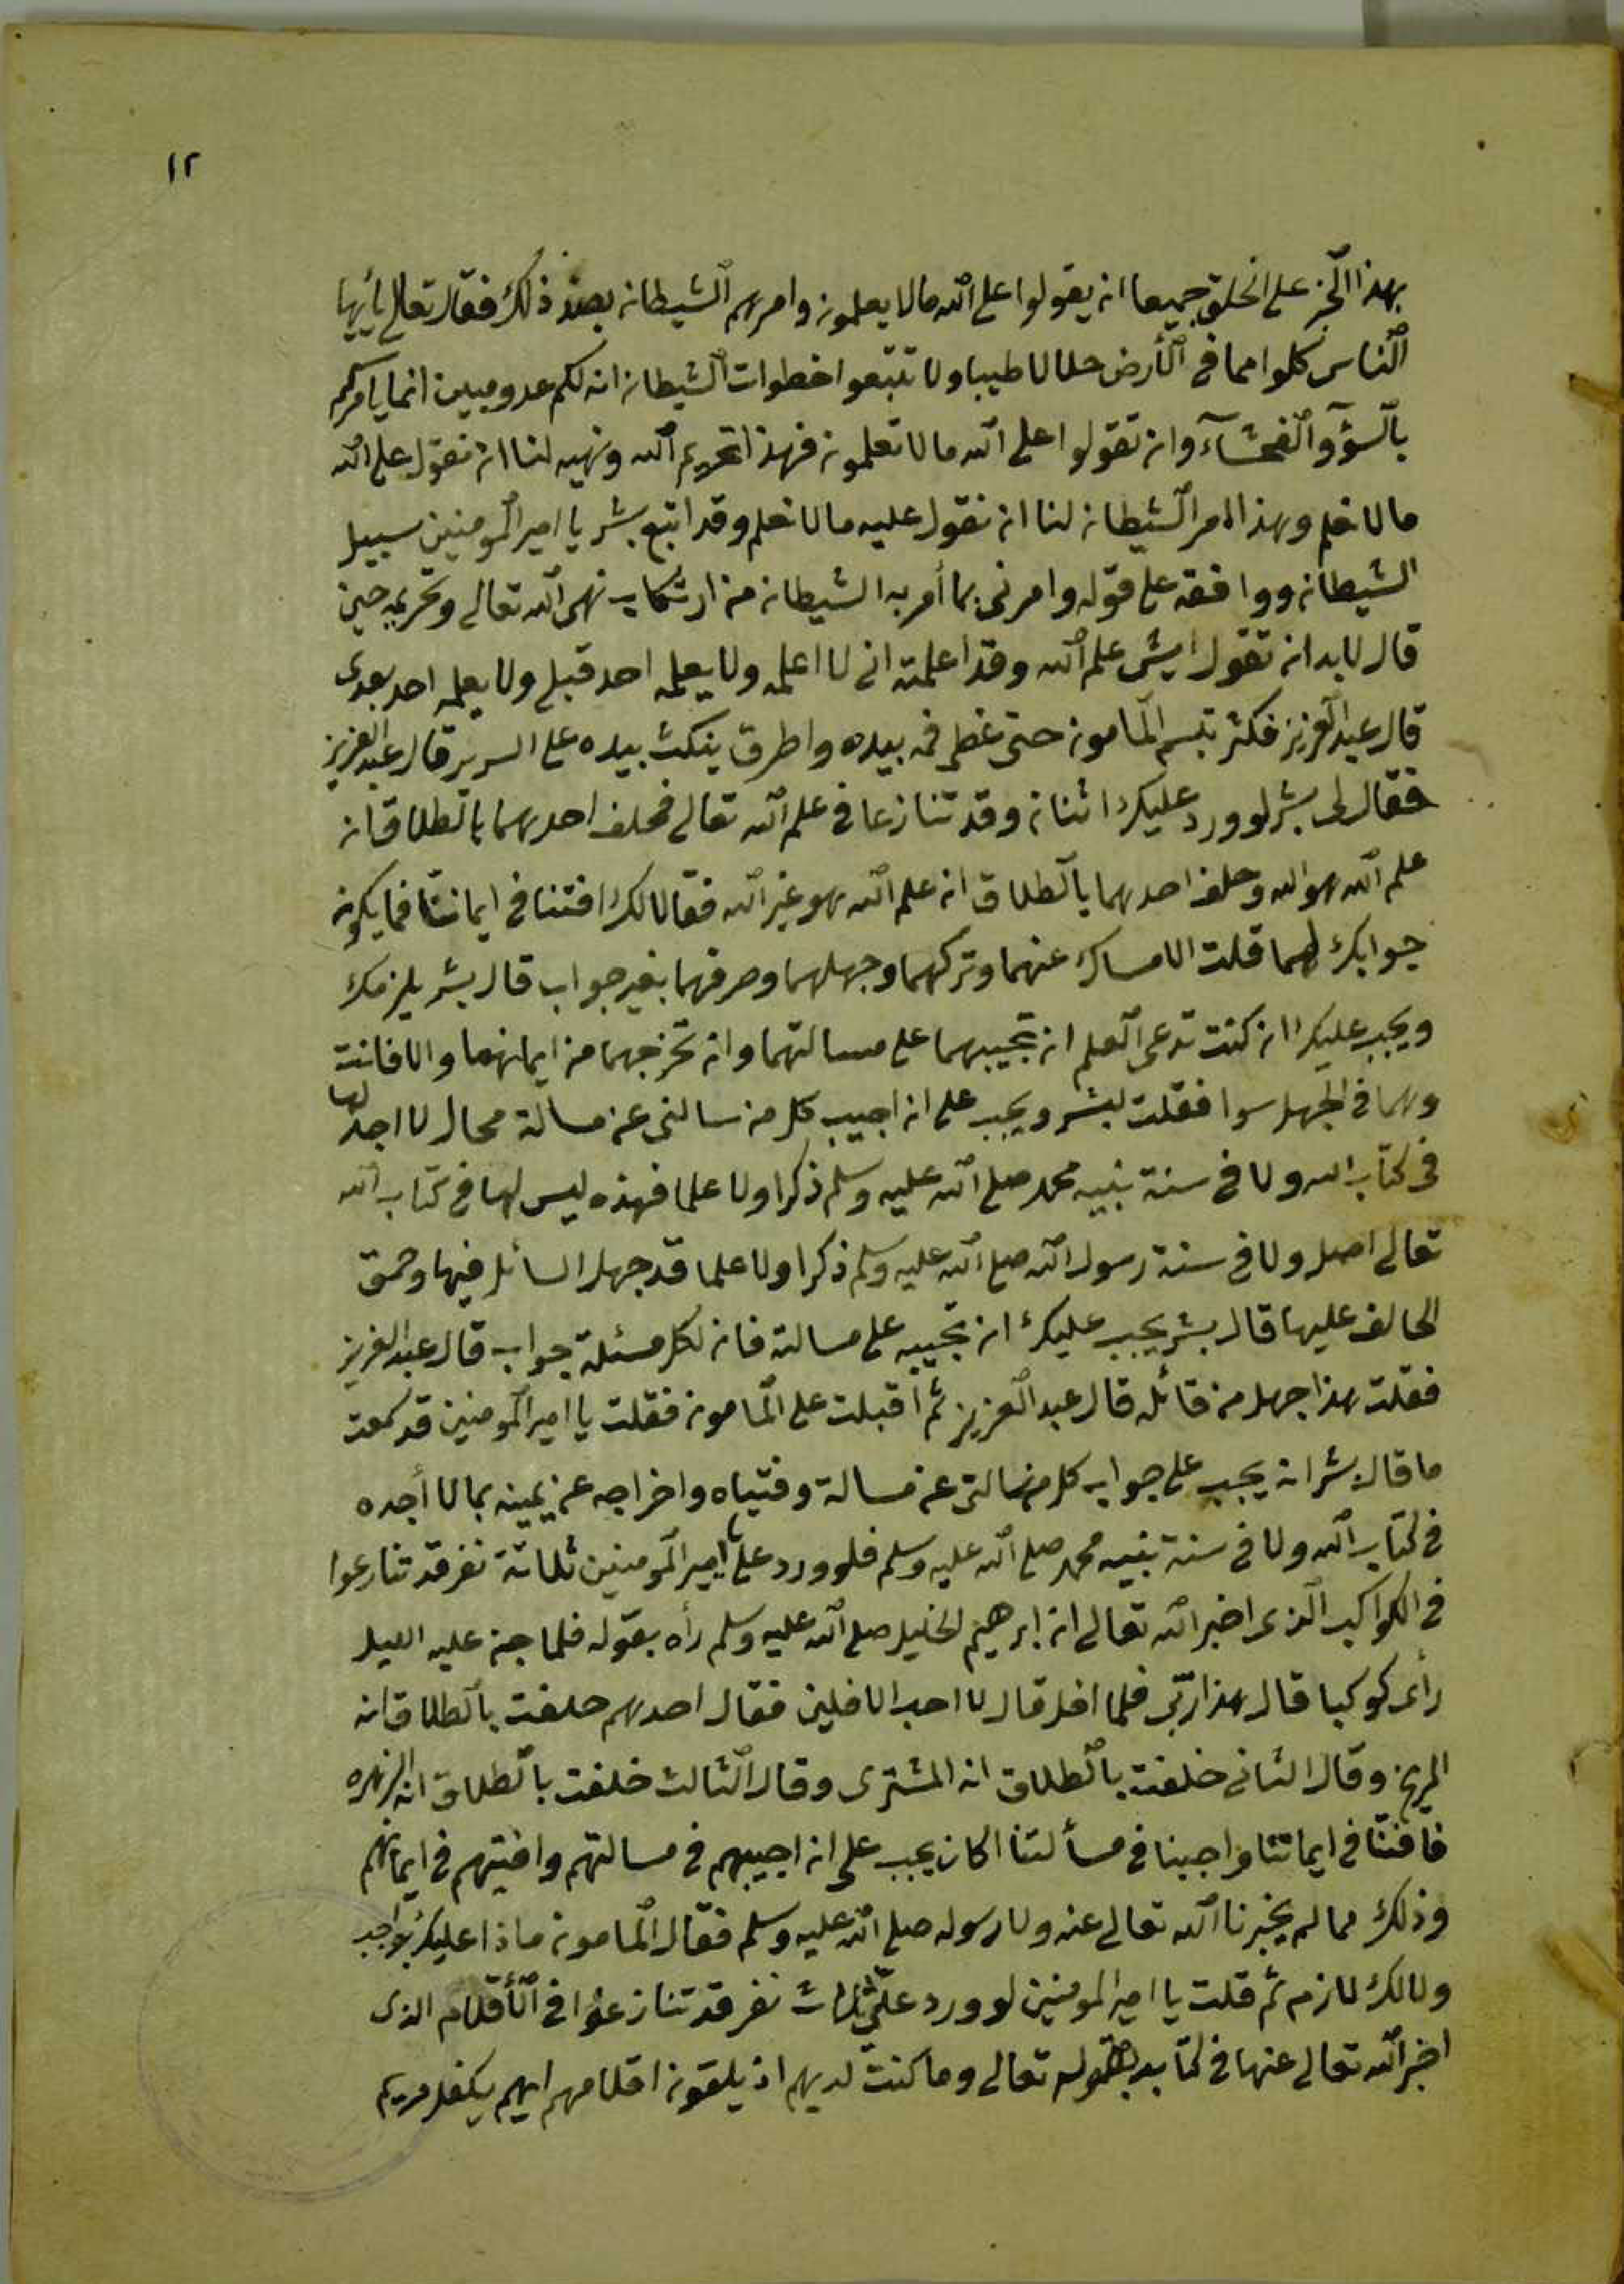 ١٢
بهذا الخبر على الخلق جميعا ان يقولوا على الله مالا يعلمون وامرهم الشيطان بضد ذلك فقال تعالى يأيها
الناس كلوا مما في الأرض حلالا طيبا ولا تتبعوا خطوات الشيطان انه لكم عدو مبين انما يامركم
بالسوٓء والفحشآء وان تقولوا على الله مالا تعلمون فهذا تحريم الله ونهيه لنا ان نقول على الله
مالا نعلم وهذا امر الشيطان لنا ان نقول عليه مالا نعلم وقد اتبع بشر يا امير المومنين سبيل
الشيطان ووافقه على قوله وامرنى بما أمر به الشيطان من ارتكاب نهى الله تعالى وتحريمه حين
قال لابد ان تقول ايش علم الله وقد اعلمته انى لا اعلمه ولا يعلمه احد قبلى ولا يعلمه احد بعدى
قال عبد العزيز فكثر تبسم المامون حتى غطى فمه بيده واطرق ينكث بيده على السرير قال عبد العزيز
فقال لى بشر لو ورد عليك اثنان وقد تنازعا في علم الله تعالى فحلف احدهما بالطلاق ان
علم الله هو الله وحلف احدهما بالطلاق ان علم الله هو غير الله فقالا لك افتنا في ايماننا فما يكون
جوابك لهما قلت الامساك عنهما وتركهما وجهلهما وصرفهما بغير جواب قال بشر يلزمك
ويجب عليك ان كنت تدعى العلم ان تجيبهما على مسالتهما وان تخرجهما من ايمانهما والا فانت
وهما في الجهل سوا فقلت لبشر ويجب على ان اجيب كل من سالنى عن مسالة محال لا اجد لها
في كتاب الله ولا في سنة نبيه محمد صلى الله عليه وسلم ذكرا ولا علما فهذه ليس لها في كتاب الله
تعالى اصل ولا في سنة رسول الله صلى الله عليه وسلم ذكرا ولا علما قد جهل السائل فيها وحمق
الحالف عليها قال بشر يجب عليك ان تجيبه على مسالته فان لكل مسئلة جواب قال عبد العزيز
فقلت هذا جهل من قائله قال عبد العزيز ثم اقبلت على المامون فقلت يا امير المومنين قد سمعت
ما قال بشر انه يجب على جواب كل من سالنى عن مسالة وفتياه واخراجه عن يمينه بما لا أجده
في كتاب الله ولا في سنة نبيه محمد صلى الله عليه وسلم فلو ورد على يا امير المومنين ثلاثة نفر قد تنازعوا
في الكواكب الذى اخبر الله تعالى ان ابرهيم الخليل صلى الله عليه وسلم رأه بقوله فلما جن عليه الليل
رأى كوكبا قال هذا ربى فلما افل قال لا احب الافلين فقال احدهم حلفت بالطلاق انه
المريخ وقال الثانى حلفت بالطلاق انه المشترى وقال الثالث حلفت بالطلاق انه الزهره
فافتنا في ايماننا واجبنا في مسألتنا اكان يجب على ان اجيبهم في مسالتهم وافتيهم في ايمانهم
وذلك مما لم يخبرنا الله تعالى عنه ولا رسوله صلى الله عليه وسلم فقال المامون ما ذا عليك بواجب
ولا لك لازم ثم قلت يا امير المومنين لو ورد على ثلاث نفر قد تنازعوا في الأقلام الذى
اخبر الله تعالى عنها في كتابه بقوله تعالى وما كنت لديهم اذ يلقون اقلامهم ايهم يكفل مريم